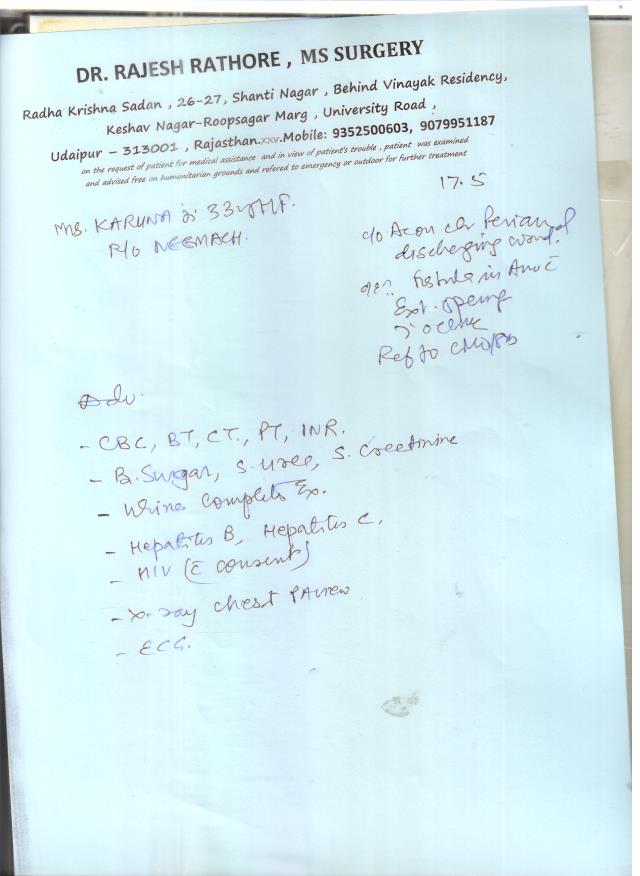 DR. RAJESH RATHORE , MS SURGERY
Radha Krishna Sadan , 26-27, Shanti Nagar , Behind Vinayak Residency,
Keshav Nagar-Roopsagar Marg , University Road ,
Udaipur – 313001 , Rajasthan.xxv.Mobile: 9352500603, 9079951187
on the request of patient for medical assistance and in view of patient's trouble , patient was examined
and advised free on humanitarian grounds and refered to emergency or outdoor for further treatment
17.5
Mrs. KARUNA 33
R/o NEEMACH.
c/o Ac on chr Perianal
discharging wound.
fistula in Ano c̄
Ext. opening
Ref to
Adv.
- CBC, BT, CT., PT, INR.
- B. Surgar, S. urea, S. Creetinine
- Urine Complete Ex.
- Hepatitis B, Hepatitis C,
- HIV (c̄ consents)
- X-ray chest PA view
- ECG.